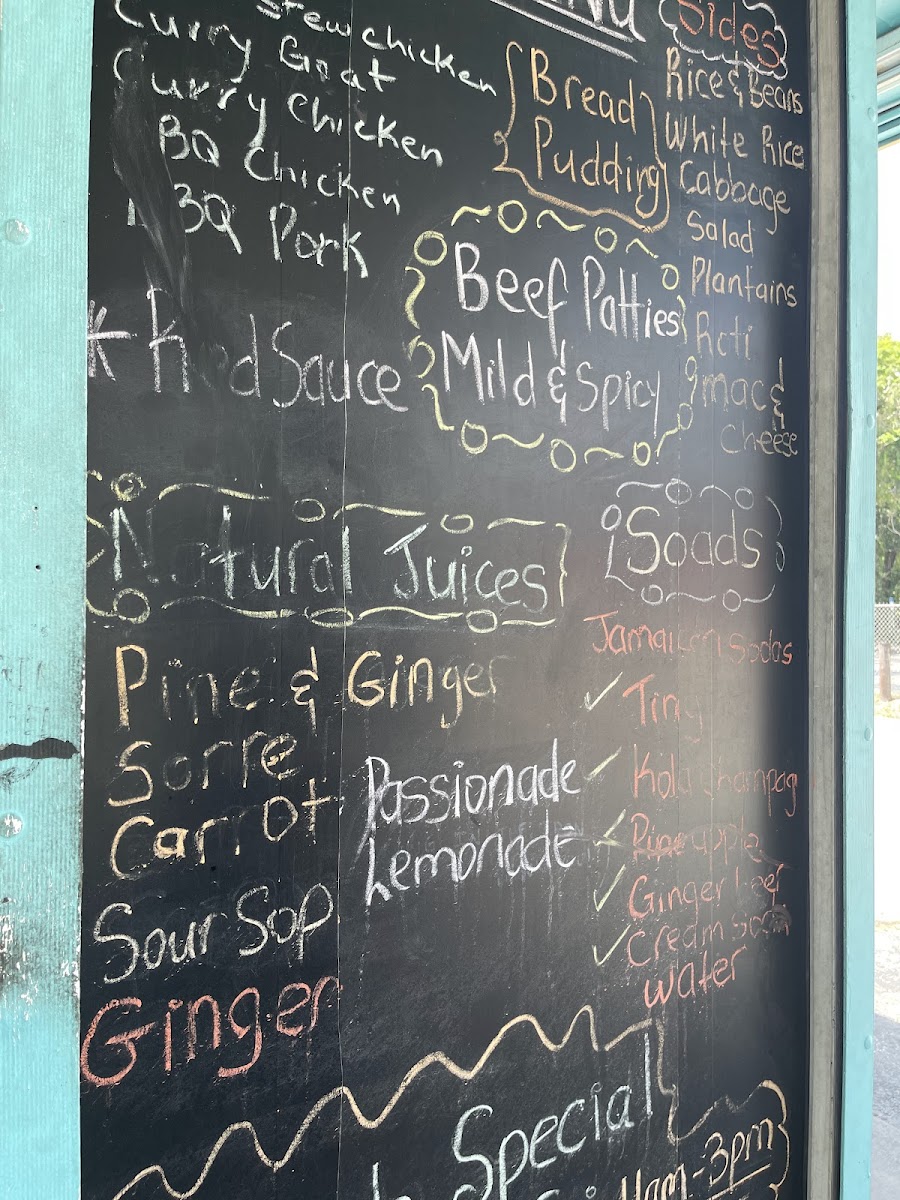 Stew chicken
Curry Goat
Curry Chicken
BQ Chicken
BQ Pork
Red Sauce
Bread
Pudding
Beef Patties
Mild & Spicy
Sides
Rice & Beans
White Rice
Cabbage
Salad
Plantains
Roti
mac &
Cheese
Natural Juices
Pine & Ginger
Sorrel
Carrot
Sour Sop
Ginger
Passionade
Lemonade
Soads
Jamaican Sodas
Ting
Kola Champag
Pineapple
Ginger beer
Cream soda
water
Special
11am-3pm